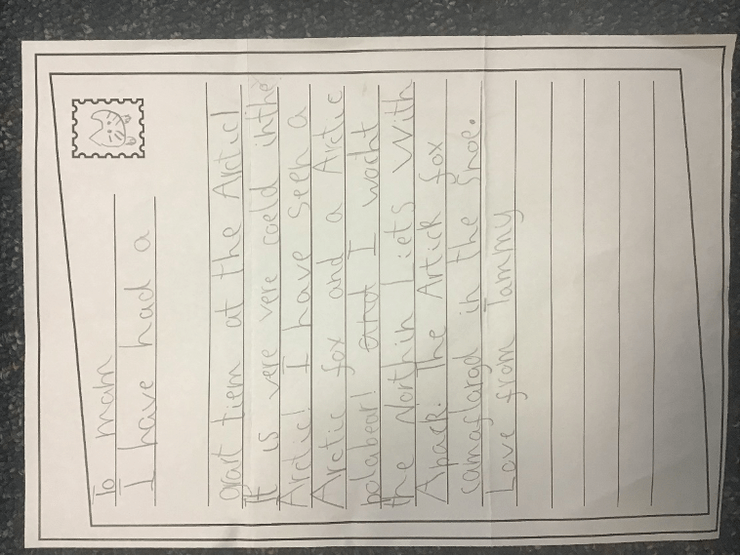 To mam
I have had a
grart tiem at the Arctic!
It is vere vere coeld inthe
Arctic! I have seen a
Arctic fox and a Arctic
polabear! and I wocht
the Northin Liets with
Apack. The Artick fox
camaflargd in the snoe.
Love from Tammy